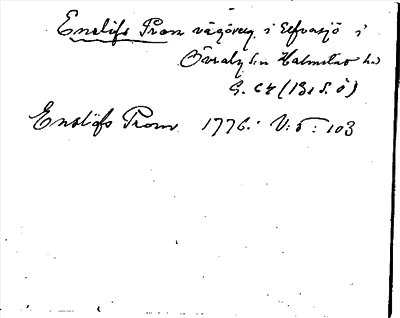 Enslöfs Prom vägöverg. i Elfvasjö i
Övraby sn Halmstad hd
G. C4 (131 S. Ö)
Enslöfs Prom 1776: V: 5: 103